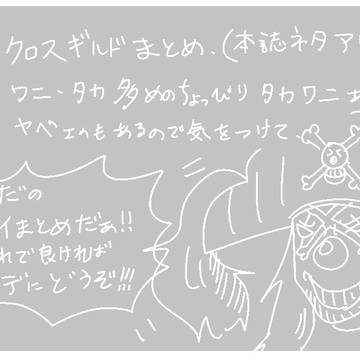 クロスギルドまとめ、(本誌ネタア
ワニ・タカ多めのちょっぴりタカワニ
ヤベェのもあるので気をつけて、
だの
イまとめだぁ!!
れで良ければ
デにどうぞ!!!